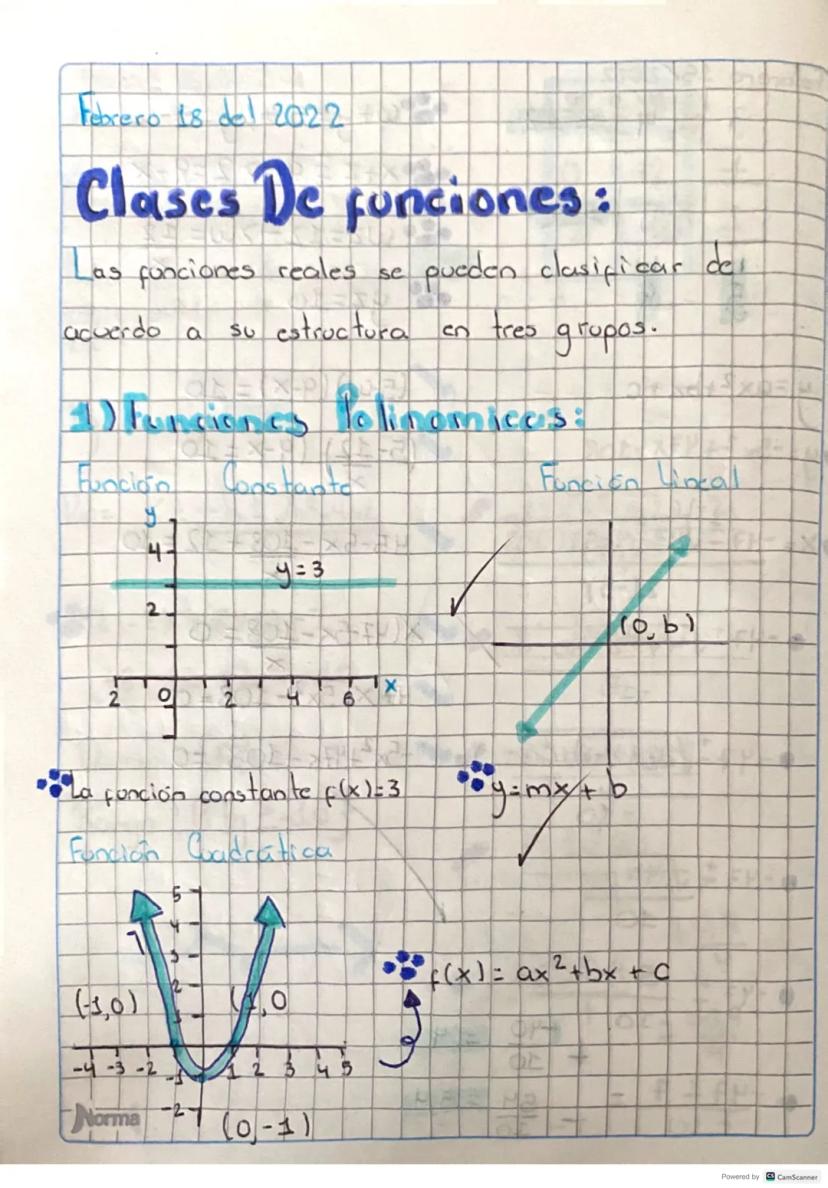 Febrero 18 del 2022
Clases De funciones:
Las funciones reales se pueden clasificar de
acuerdo a su estructura en tres grupos.
1) Funciones Polinomicas:
Función Constante
Función Lineal
y
4
y = 3
2
(0, b)
2 0 2 4 6 x
La función constante f(x)=3
y=mx + b
Función Cuadrática
5
4
3
2
1
(-1,0)
(1,0
f(x)= ax²+bx + c
-4 -3 -2 -1 1 2 3 4 5
-2
(0,-1)
Norma
Powered by CS CamScanner